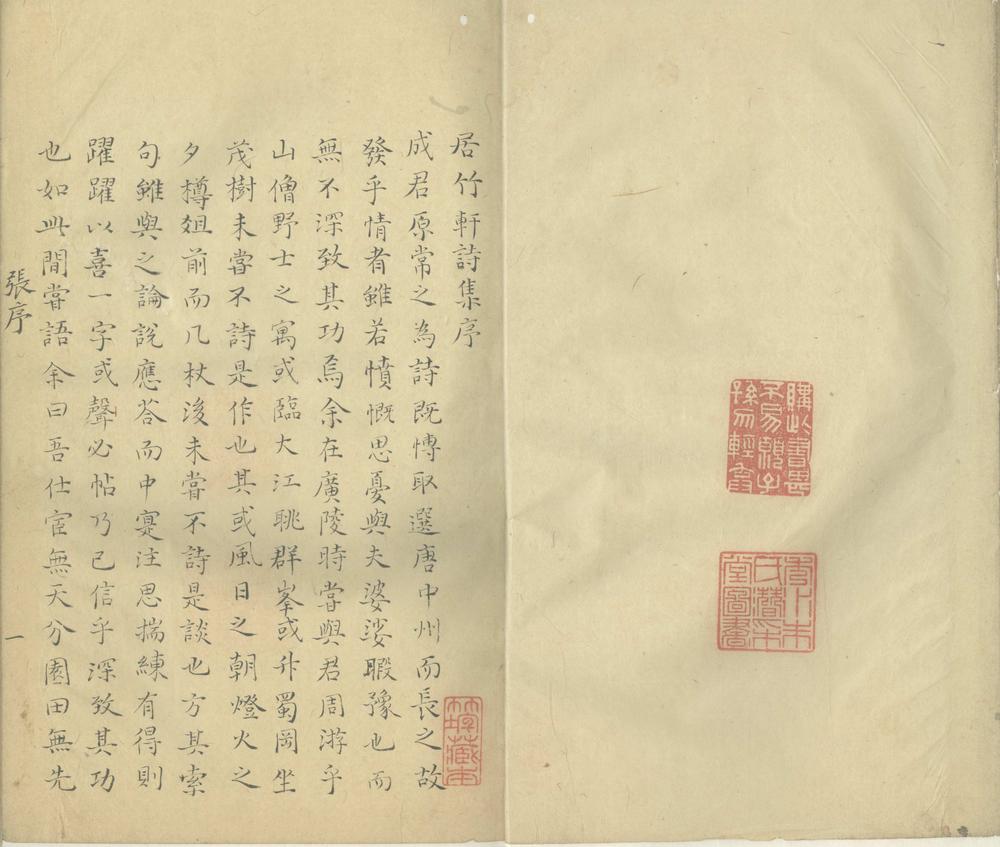 購此書甚
不易願子
孫勿輕棄
秀水朱
氏潛采
堂圖書
居竹軒詩集序
竹垞藏本
成君原常之為詩既愽取選唐中州而長之故
發乎情者雖若憤慨思憂與夫婆娑暇豫也而
無不深致其功焉余在廣陵時嘗與君周游乎
山僧野士之寓或臨大江眺群峯或升蜀岡坐
茂樹未嘗不詩是作也其或風日之朝燈火之
夕樽俎前而几杖後未嘗不詩是談也方其索
句雖與之論說應答而中寔注思揣練有得則
躍躍以喜一字或聲必帖乃已信乎深致其功
也如此間嘗語余曰吾仕宦無天分園田無先
張序
一